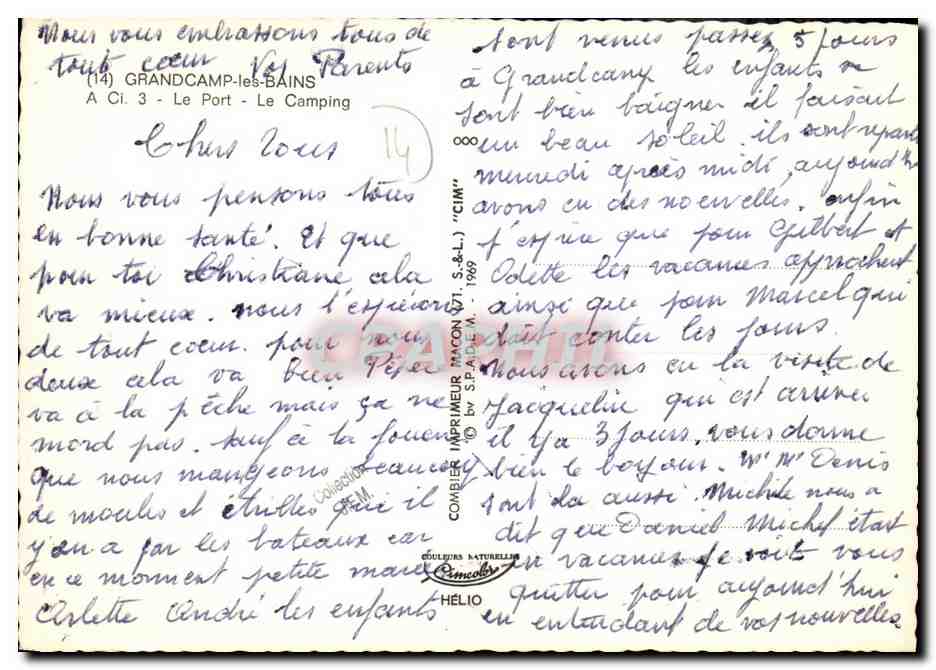 Nous vous embrassons tous de
tout cœur Vos Parents
(14) GRANDCAMP-les-BAINS
A Ci. 3 - Le Port - Le Camping
14
Chers Tous
Nous vous pensons tous
en bonne santé. Et que
pour toi Christiane cela
va mieux. nous l'espérons
de tout cœur. pour nous
deux cela va bien Pépé
va à la pêche mais ça ne
mord pas. sauf à la
que nous mangeons beaucoup
de moules et étrilles que il
y en a par les bateaux car
en ce moment petite marée
Arlette André les enfants
sont venus passer 5 jours
à Grandcamp les enfants se
sont bien baigner il faisait
un beau soleil. ils sont reparti
mercredi après midi, aujourd'hui
avons eu des nouvelles. enfin
j'espère que pour Gilbert et
Odette les vacances approchent
ainsi que pour Marcel qui
doit conter les jours.
Nous avons eu la visite de
Jacqueline qui est arriver
il y a 3 jours, vous donne
bien le bonjour. Mr Me Denis
sont la aussi. Michele nous a
dit que Daniel Michel était
en vacances je vais vous
quitter pour aujourd'hui
en entendant de vos nouvelles
COMBIER IMPRIMEUR MACON (71. S.-&-L.) "CIM"
© by S.P.A.D.E.M. - 1969
COULEURS NATURELLES
Cimcolor
HÉLIO
Collection
CPAPHIL